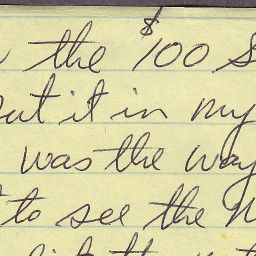 the $100
put it in my
was the way
to see the